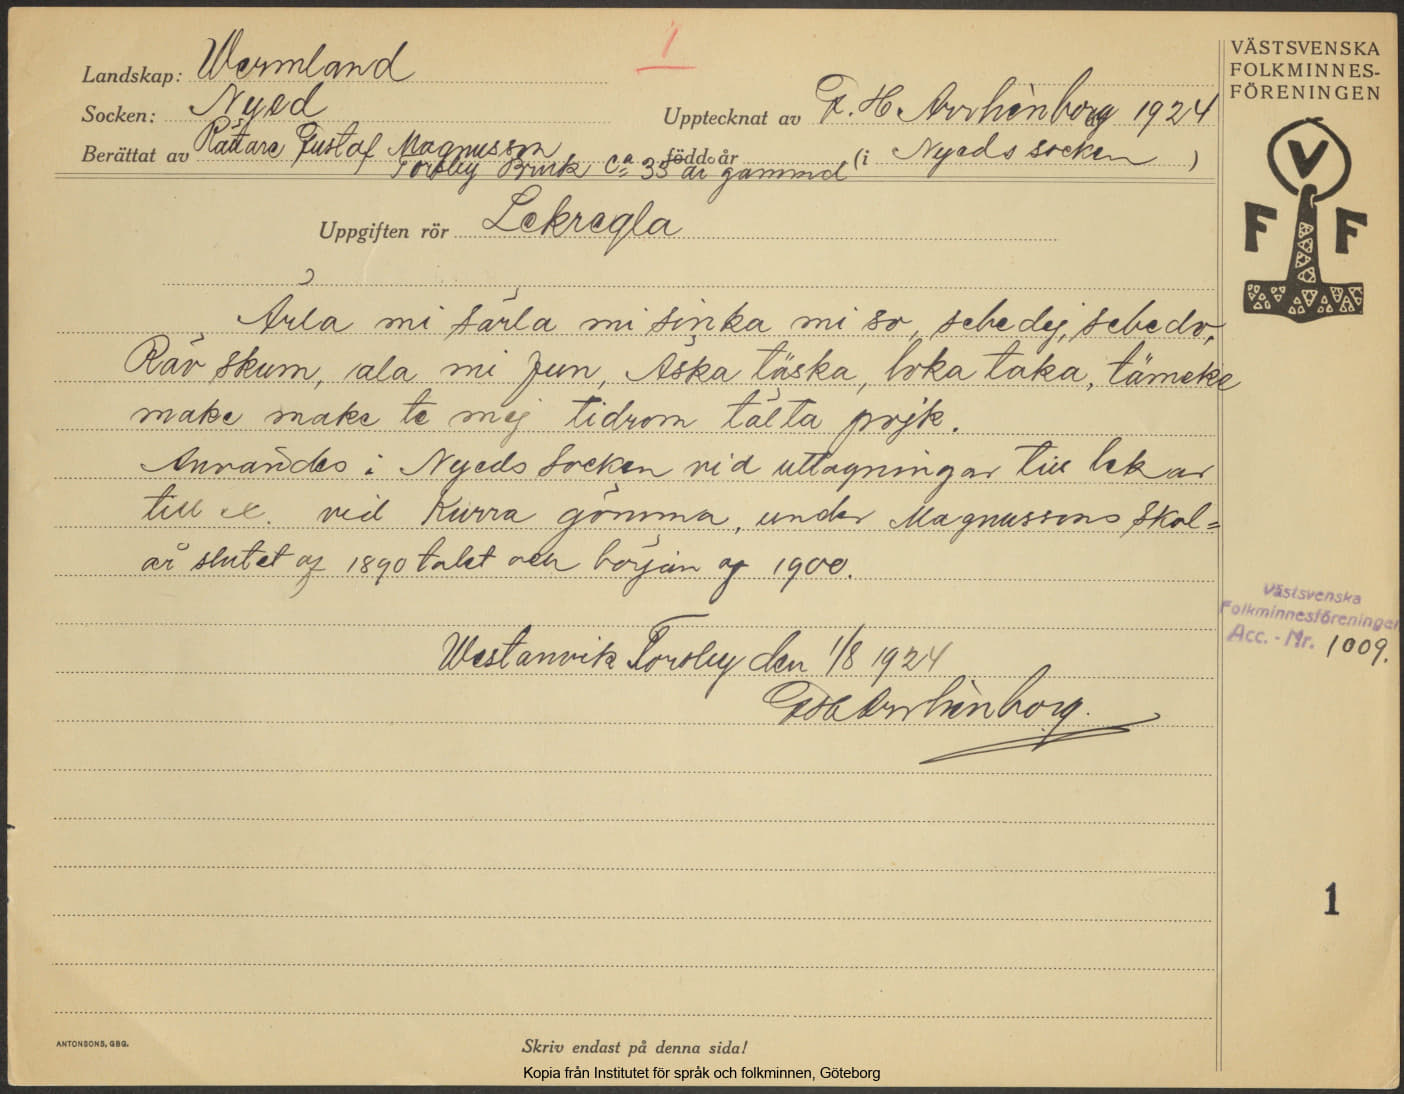 1
Landskap: Wermland
Socken: Nyed
Upptecknat av F. H. Arrhénborg 1924
Berättat av Rättare Gustaf Magnusson född år (i Nyeds socken)
Torsby Bruk Ca 35 år gammal
Uppgiften rör Lekregla
Ärla mi särla mi sinka mi so, sebedej, sebedo,
Räv skum, ala mi jun, Äska täska, loka taka, tämeke
make make te mej tidrom tälta pojk.
Användes i Nyeds socken vid uttagningar till lekar
till ex. vid Kurra gömma, under Magnussons skol=
år slutet af 1890 talet och början af 1900.
Westanvik Torsby den 1/8 1924
Arrhénborg.
VÄSTSVENSKA
FOLKMINNES-
FÖRENINGEN
V
F F
Västsvenska
Folkminnesföreningen
Acc. - Nr. 1009.
1
ANTONSONS, GBG.
Skriv endast på denna sida!
Kopia från Institutet för språk och folkminnen, Göteborg